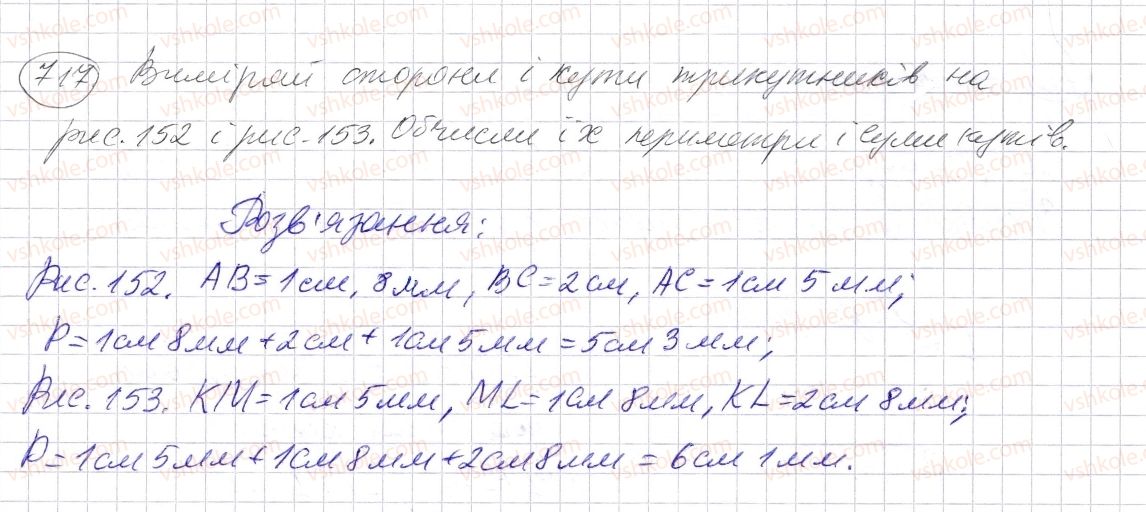 717 Виміряй сторони і кути трикутників на
рис. 152 і рис. 153. Обчисли їх периметри і суми кутів.
Розв'язання:
Рис. 152. AB = 1 см, 8 мм, BC = 2 см, AC = 1 см 5 мм;
P = 1 см 8 мм + 2 см + 1 см 5 мм = 5 см 3 мм;
Рис. 153. KM = 1 см 5 мм, ML = 1 см 8 мм, KL = 2 см 8 мм;
P = 1 см 5 мм + 1 см 8 мм + 2 см 8 мм = 6 см 1 мм.